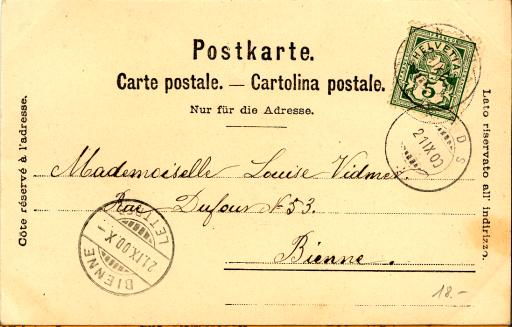 Postkarte.
Carte postale. — Cartolina postale.
Nur für die Adresse.
Côte réservé à l'adresse.
Lato riservato all' indirizzo.
HELVETIA
5
21 IX 00
Mademoiselle Louise Vidmer.
Rue Dufour № 53.
Bienne.
BIENNE
21.IX.00.X–
LETTRES
18.–